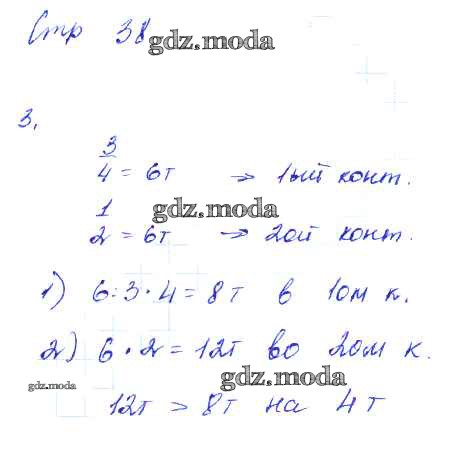 Стр 38
gdz.moda
3.
3
4 = 6т → 1ый конт.
1
gdz.moda
2 = 6т → 2ой конт.
1) 6:3·4=8т в 1ом к.
2) 6·2=12т во 2ом к.
gdz.moda
gdz.moda
12т > 8т на 4т